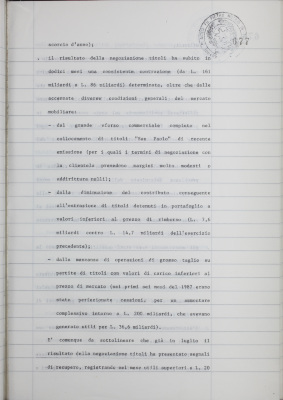 177
scorcio d'anno);
- il risultato della negoziazione titoli ha subito in
dodici mesi una consistente contrazione (da L. 161
miliardi a L. 86 miliardi) determinata, oltre che dalle
accertate diverse condizioni generali del mercato
mobiliare:
- dal grande sforzo commerciale compiuto nel
collocamento di titoli "San Paolo" di recente
emissione (per i quali i termini di negoziazione con
la clientela prevedono margini molto modesti o
addirittura nulli);
- dalla diminuzione del contributo conseguente
all'estrazione di titoli detenuti in portafoglio a
valori inferiori al prezzo di rimborso (L. 7,6
miliardi contro L. 14,7 miliardi dell'esercizio
precedente);
- dalla mancanza di operazioni di grosso taglio su
partite di titoli con valori di carico inferiori al
prezzo di mercato (nei primi sei mesi del 1987 erano
state perfezionate cessioni, per un ammontare
complessivo intorno a L. 200 miliardi, che avevano
generato utili per L. 36,6 miliardi).
E' comunque da sottolineare che già in luglio il
risultato della negoziazione titoli ha presentato segnali
di recupero, registrando nel mese utili superiori a L. 20